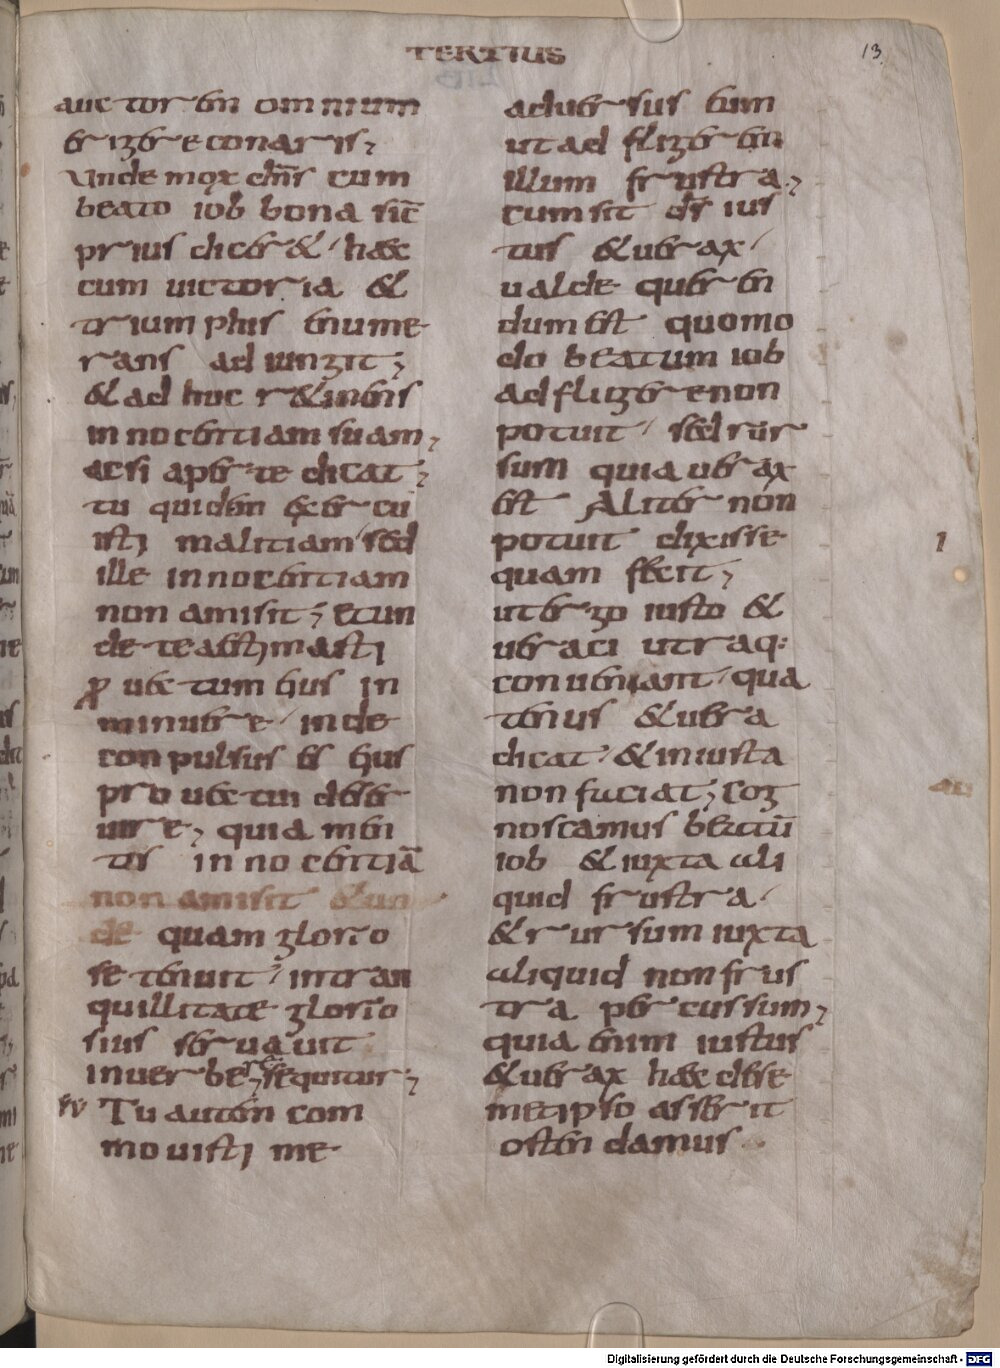 TERTIUS
13
auctorem omnium
erigere conaris;
Unde mox dn̄s cum
beato iob bona sic̄
prius diceret haec
cum victoria &
triumphis enume
rans adiungit;
& adhuc retinens
innocentiam suam;
ac si aperte dicat;
tu quidem exercu
isti malitiam sed
ille innocentiam
non amisit; et un
de te aestimasti
ꝓuectum eius in
minuere inde
conpulsus es eius
prouectui deser
uire; quia men
tis innocentiā
non amisit & un
de quam glorio
se tenuit intran
quillitate glorio
sius seruauit
in verbere; sequitur;
Tu autem com
mouisti me
aduersus eum
ut adfligerem
illum frustra;
cum sit d̄s ius
tus & uerax
ualde queren
dum est quomo
do beatum iob
adfligere non
potuit sed rur
sum quia uerax
est Aliter non
potuit dixisse
quam fecit;
ut ergo iusto &
ueraci utraq:
conueniant qua
tenus & uera
dicat & iniusta
non faciat; Cog
noscamus beatū
iob & iuxta ali
quid frustra
& rursum iuxta
aliquid non frus
tra percussum;
quia enim iustus
& uerax haec de se
metipso asserit
ostendamus
Digitalisierung gefördert durch die Deutsche Forschungsgemeinschaft - DFG